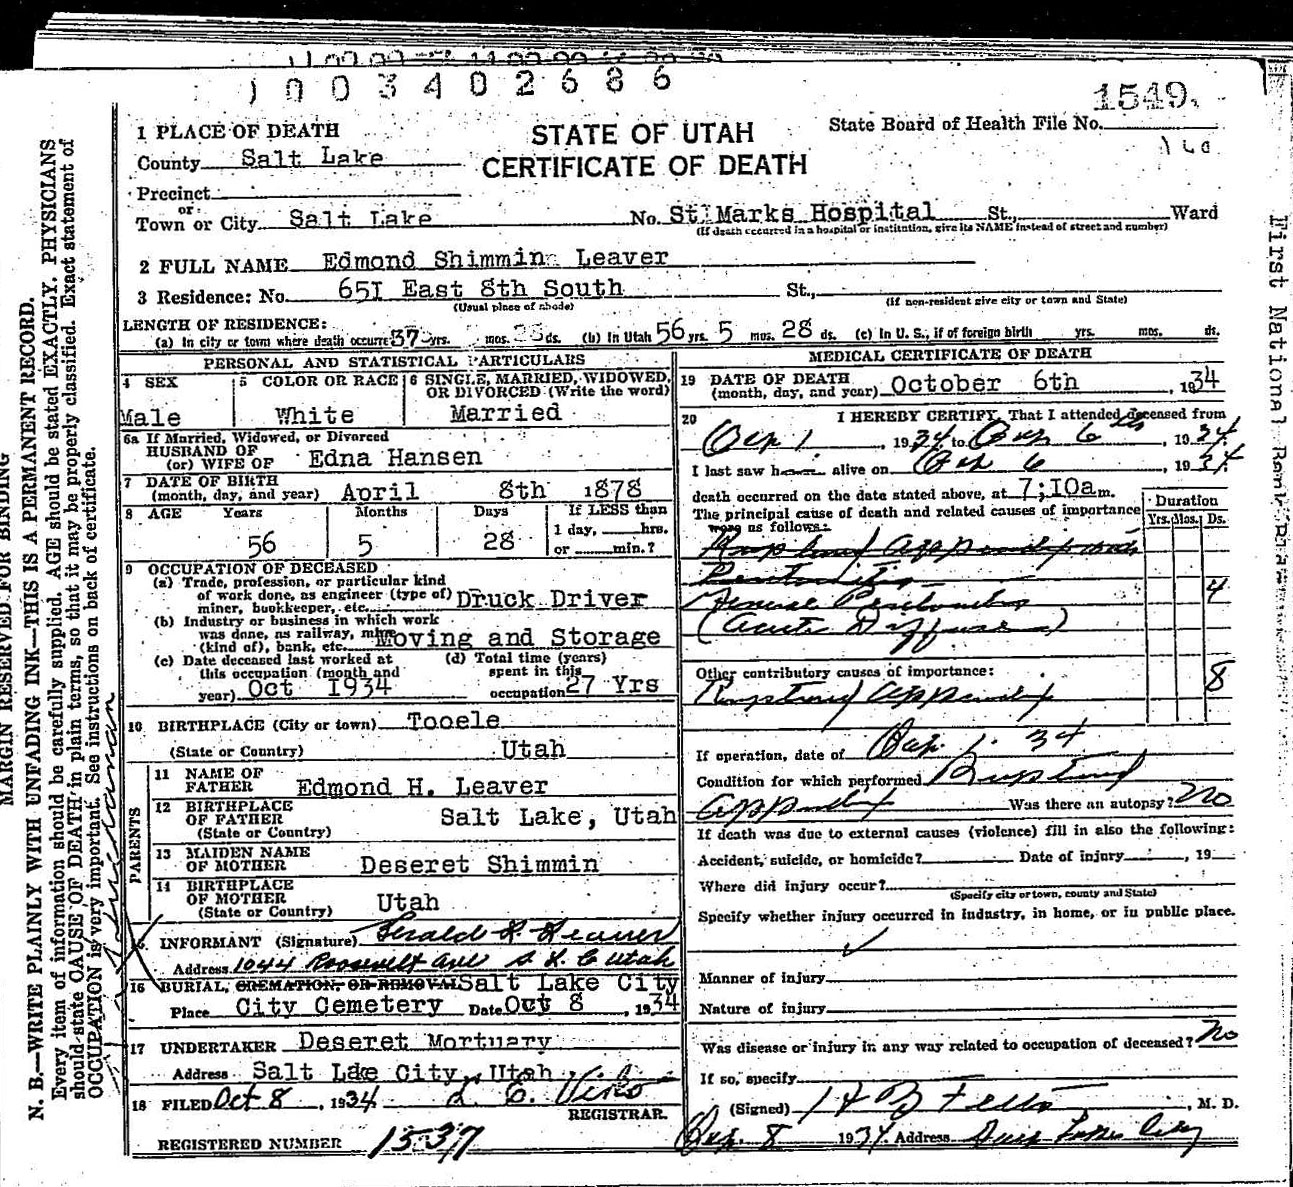 1003402686
1549.
1 PLACE OF DEATH
STATE OF UTAH
State Board of Health File No.
County Salt Lake
CERTIFICATE OF DEATH
Precinct
or
Town or City Salt Lake No. St Marks Hospital St., Ward
(If death occurred in a hospital or institution, give its NAME instead of street and number)
2 FULL NAME Edmond Shimmin Leaver
3 Residence: No. 65I East 8th South St.,
(Usual place of abode) (If non-resident give city or town and State)
LENGTH OF RESIDENCE:
(a) In city or town where death occurre 37 yrs. mos. 28 ds. (b) In Utah 56 yrs. 5 mos. 28 ds. (c) In U. S., if of foreign birth yrs. mos. ds.
PERSONAL AND STATISTICAL PARTICULARS
4 SEX 5 COLOR OR RACE 6 SINGLE, MARRIED, WIDOWED,
OR DIVORCED (Write the word)
Male White Married
6a If Married, Widowed, or Divorced
HUSBAND OF
(or) WIFE OF Edna Hansen
7 DATE OF BIRTH
(month, day, and year) April 8th 1878
8 AGE Years Months Days If LESS than
1 day, hrs.
56 5 28 or min.?
9 OCCUPATION OF DECEASED
(a) Trade, profession, or particular kind
of work done, as engineer (type of) Druck Driver
miner, bookkeeper, etc.
(b) Industry or business in which work
was done, as railway, mine Moving and Storage
(kind of), bank, etc.
(c) Date deceased last worked at (d) Total time (years)
this occupation (month and spent in this
year) Oct I934 occupation 27 Yrs
10 BIRTHPLACE (City or town) Tooele
(State or Country) Utah
PARENTS
11 NAME OF
FATHER Edmond H. Leaver
12 BIRTHPLACE
OF FATHER Salt Lake, Utah
(State or Country)
13 MAIDEN NAME
OF MOTHER Deseret Shimmin
14 BIRTHPLACE
OF MOTHER Utah
(State or Country)
INFORMANT (Signature) Gerald L. Leaver
Address 1044 Roosevelt Ave S. L. C Utah
16 BURIAL, CREMATION, OR REMOVAL Salt Lake City
Place City Cemetery Date Oct 8, 1934
17 UNDERTAKER Deseret Mortuary
Address Salt Lake City, Utah
18 FILED Oct 8, 1934
REGISTRAR.
REGISTERED NUMBER 1537
MEDICAL CERTIFICATE OF DEATH
19 DATE OF DEATH
(month, day, and year) October 6th, 1934
20 I HEREBY CERTIFY, That I attended deceased from
Oct 1, 1934 to Oct 6th, 1934
I last saw him alive on Oct 6, 1934
death occurred on the date stated above, at 7;I0a m.
The principal cause of death and related causes of importance
were as follows:
Duration
Yrs. Mos. Ds.
Ruptured appendix with
Peritonitis
General Peritonitis 4
(Acute Diffuse)
Other contributory causes of importance:
Ruptured appendix 8
If operation, date of Oct. 1. 34
Condition for which performed Ruptured
appendix Was there an autopsy? No
If death was due to external causes (violence) fill in also the following:
Accident, suicide, or homicide? Date of injury , 19
Where did injury occur?
(Specify city or town, county and State)
Specify whether injury occurred in industry, in home, or in public place.
Manner of injury
Nature of injury
Was disease or injury in any way related to occupation of deceased? No
If so, specify
(Signed) , M. D.
Oct. 8 1934 Address Salt Lake City
MARGIN RESERVED FOR BINDING
N. B.—WRITE PLAINLY WITH UNFADING INK—THIS IS A PERMANENT RECORD.
Every item of information should be carefully supplied. AGE should be stated EXACTLY. PHYSICIANS
should state CAUSE OF DEATH in plain terms, so that it may be properly classified. Exact statement of
OCCUPATION is very important. See instructions on back of certificate.
First National Bank